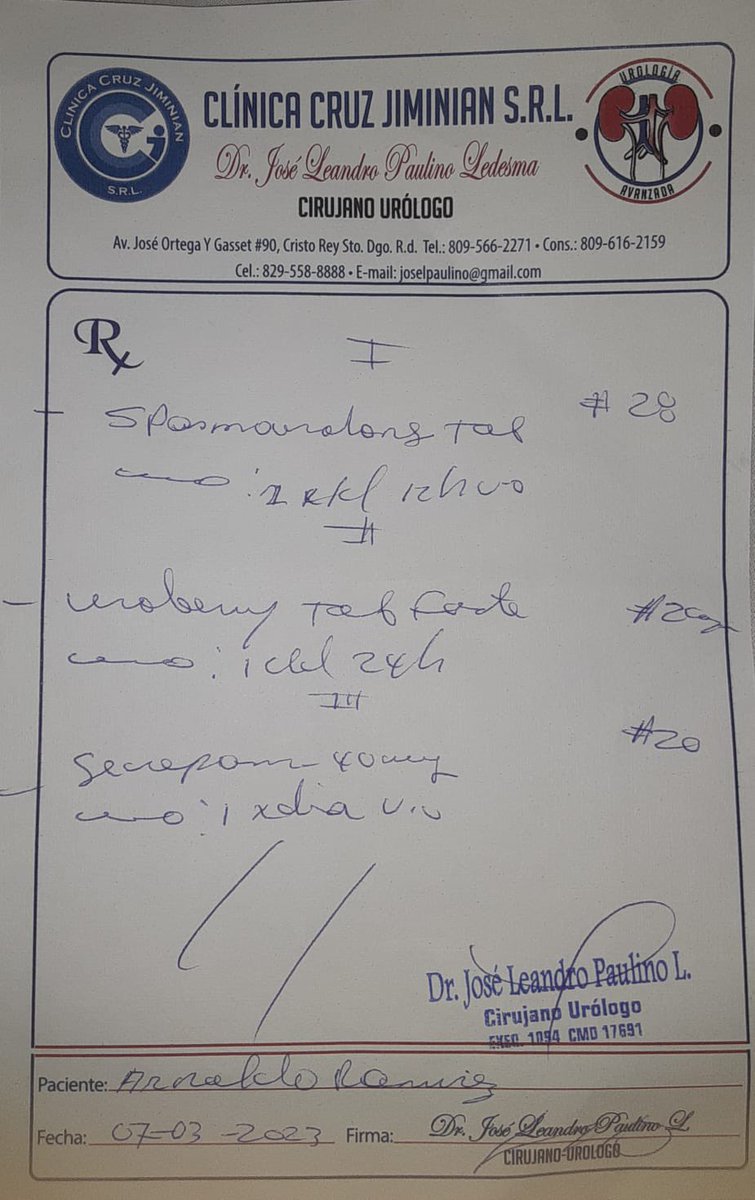 CLÍNICA CRUZ JIMINIAN S.R.L.
CLÍNICA CRUZ JIMINIAN S.R.L.
UROLOGÍA AVANZADA
Dr. José Leandro Paulino Ledesma
CIRUJANO URÓLOGO
Av. José Ortega Y Gasset #90, Cristo Rey Sto. Dgo. R.d. Tel.: 809-566-2271 • Cons.: 809-616-2159
Cel.: 829-558-8888 • E-mail: joselpaulino@gmail.com
Rx
I
Tab #28
: 1
II
Tab Forte
: 1 24h
III
40mg #20
: 1 x dia v.o
Dr. José Leandro Paulino L.
Cirujano Urólogo
EXEQ. 1094 CMD 17691
Paciente: Arnaldo Ramirez
Fecha: 07-03-2023 Firma: Dr. José Leandro Paulino L.
CIRUJANO-UROLOGO